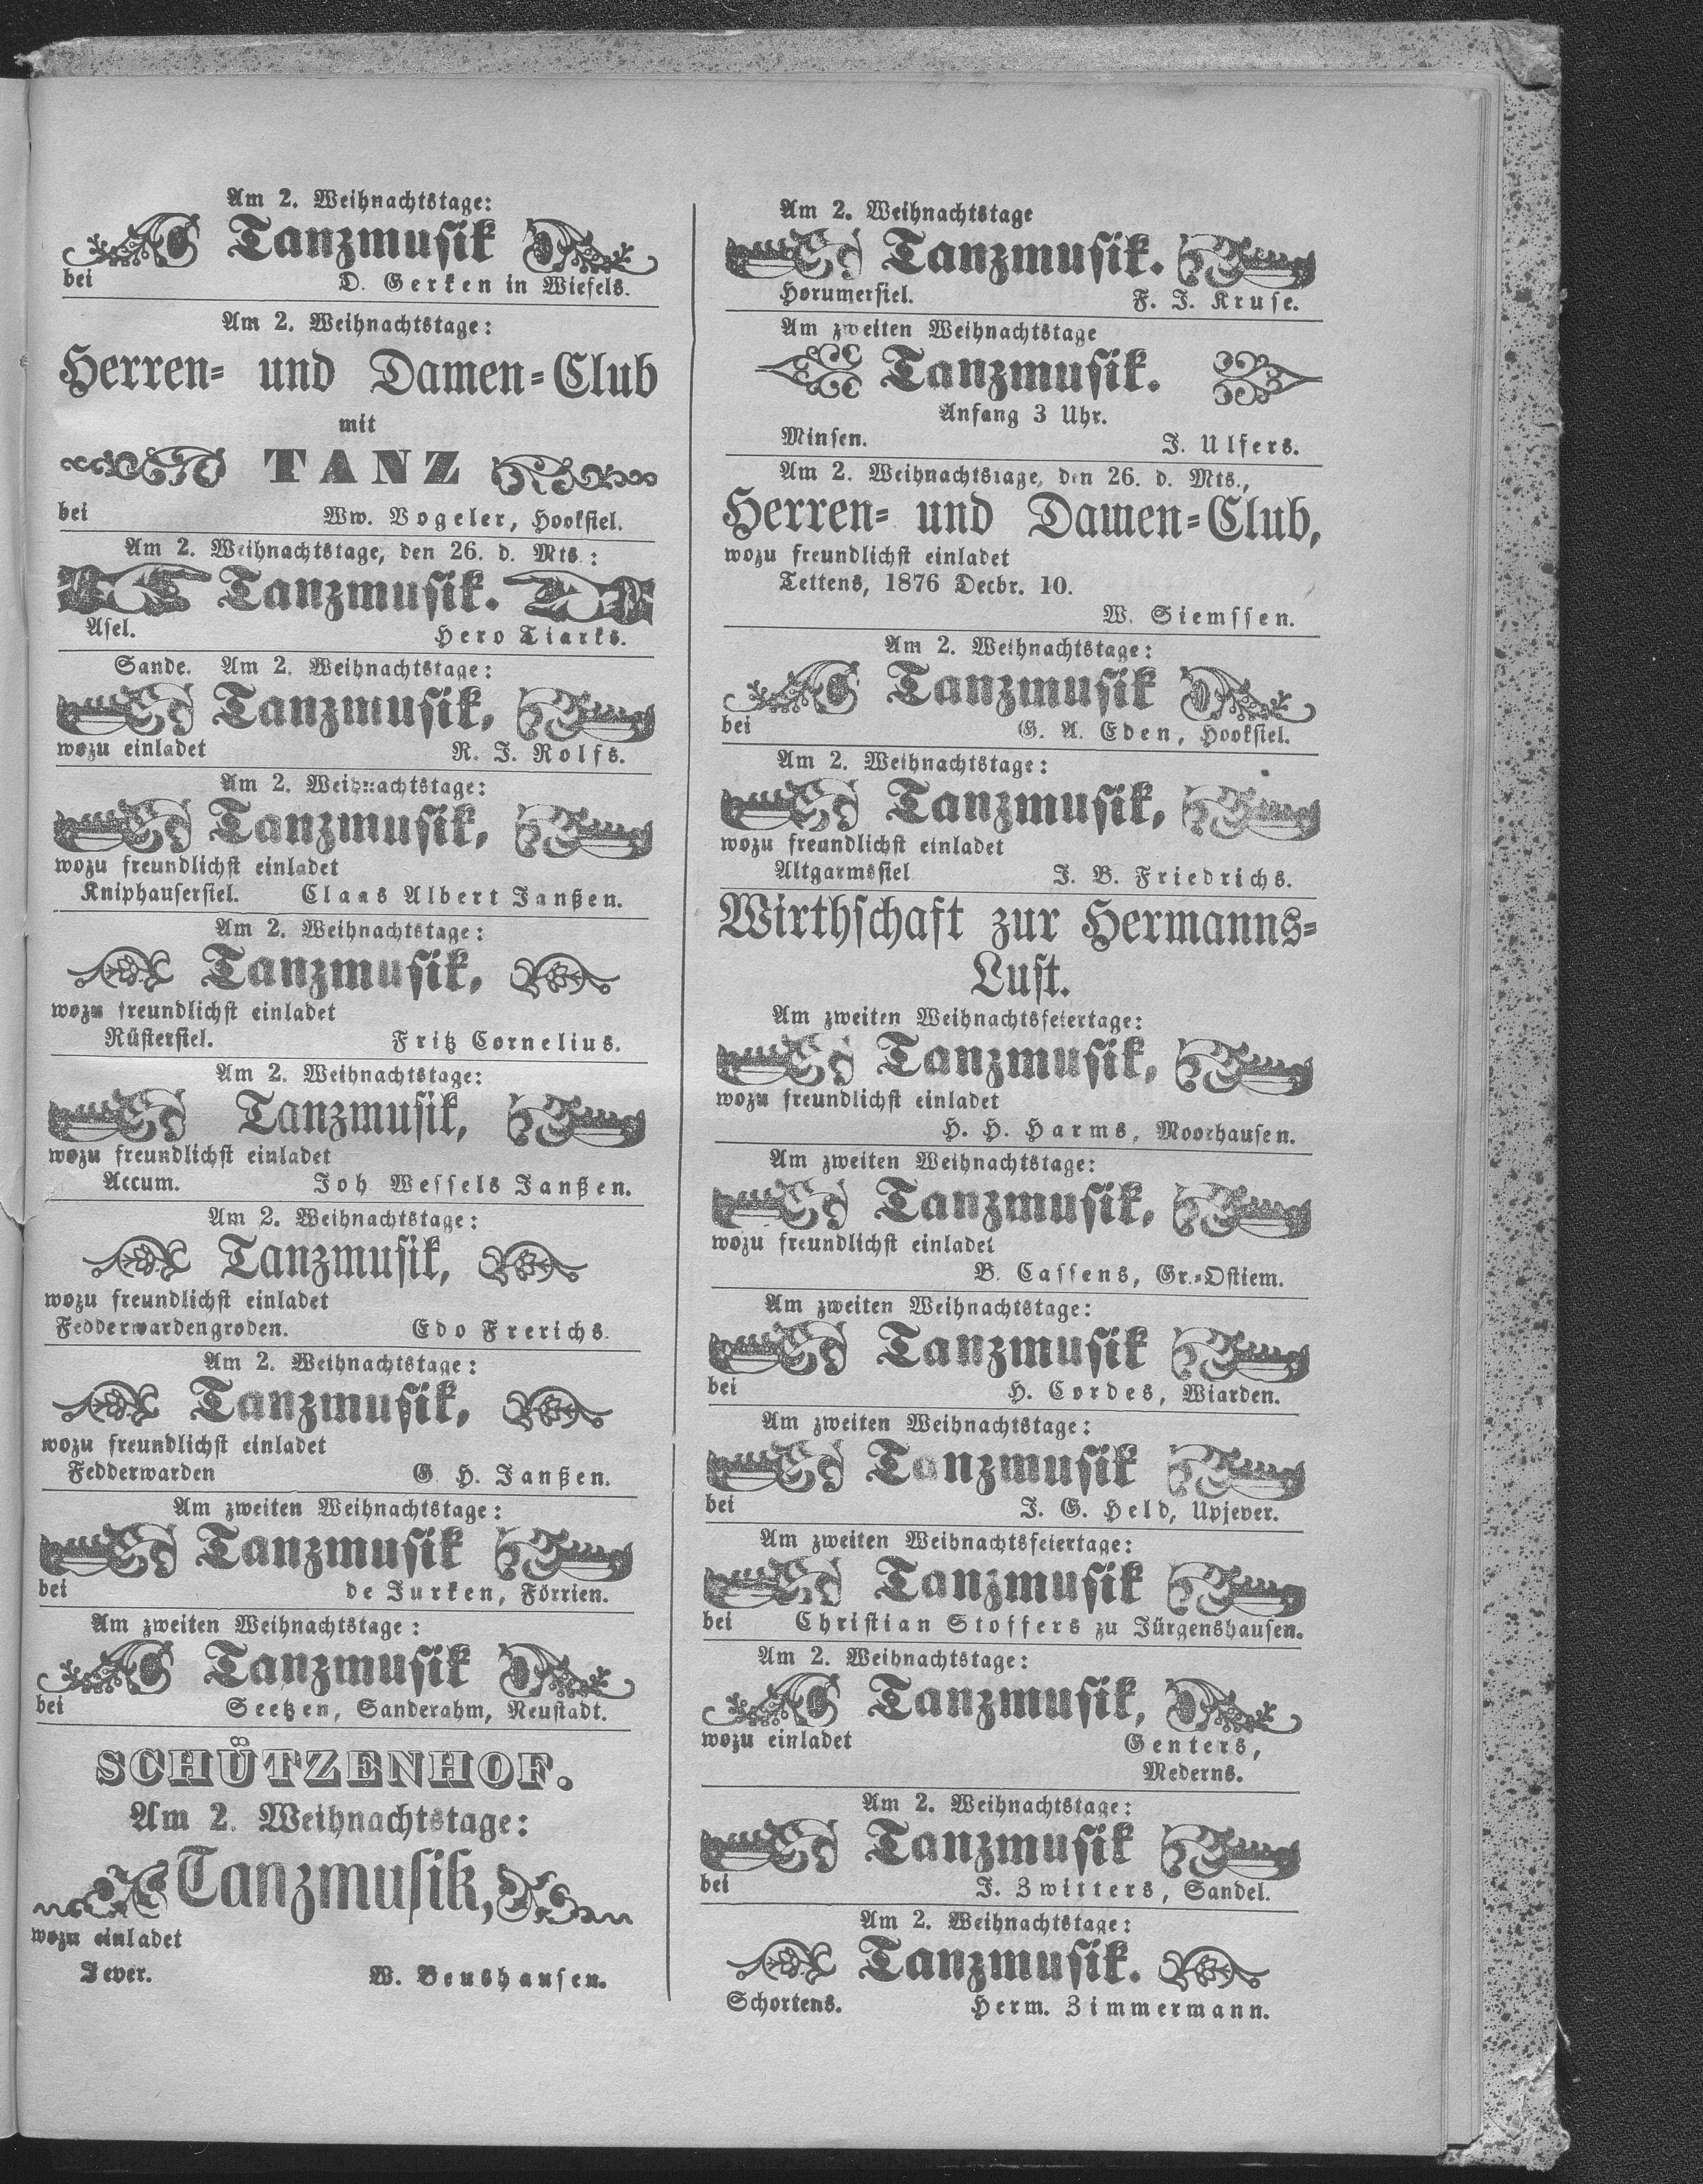 Am 2. Weihnachtstage:
Tanzmusik
bei D. Gerken in Wiefels.
Am 2. Weihnachtstage:
Herren- und Damen-Club
mit
TANZ
bei Ww. Vogeler, Hooksiel.
Am 2. Weihnachtstage, den 26. d. Mts.:
Tanzmusik.
Asel. Hero Tiarks.
Sande. Am 2. Weihnachtstage:
Tanzmusik,
wozu einladet R. J. Rolfs.
Am 2. Weihnachtstage:
Tanzmusik,
wozu freundlichst einladet
Kniphausersiel. Claas Albert Janßen.
Am 2. Weihnachtstage:
Tanzmusik,
wozu freundlichst einladet
Rüstersiel. Fritz Cornelius.
Am 2. Weihnachtstage:
Tanzmusik,
wozu freundlichst einladet
Accum. Joh Wessels Janßen.
Am 2. Weihnachtstage:
Tanzmusik,
wozu freundlichst einladet
Fedderwardengroden. Edo Frerichs.
Am 2. Weihnachtstage:
Tanzmusik,
wozu freundlichst einladet
Fedderwarden G. H. Janßen.
Am zweiten Weihnachtstage:
Tanzmusik
bei de Jurken, Förrien.
Am zweiten Weihnachtstage:
Tanzmusik
bei Seetzen, Sanderahm, Neustadt.
SCHÜTZENHOF.
Am 2. Weihnachtstage:
Tanzmusik,
wozu einladet
Jever. W. Beushausen.
Am 2. Weihnachtstage
Tanzmusik.
Horumersiel. F. J. Kruse.
Am zweiten Weihnachtstage
Tanzmusik.
Anfang 3 Uhr.
Minsen. J. Ulfers.
Am 2. Weihnachtstage, den 26. d. Mts.,
Herren- und Damen-Club,
wozu freundlichst einladet
Tettens, 1876 Decbr. 10.
W. Siemssen.
Am 2. Weihnachtstage:
Tanzmusik
bei G. A. Eden, Hooksiel.
Am 2. Weihnachtstage:
Tanzmusik,
wozu freundlichst einladet
Altgarmssiel J. B. Friedrichs.
Wirthschaft zur Hermanns-
Lust.
Am zweiten Weihnachtsfeiertage:
Tanzmusik,
wozu freundlichst einladet
H. H. Harms, Moorhausen.
Am zweiten Weihnachtstage:
Tanzmusik,
wozu freundlichst einladet
B. Cassens, Gr.-Ostiem.
Am zweiten Weihnachtstage:
Tanzmusik
bei H. Cordes, Wiarden.
Am zweiten Weihnachtstage:
Tanzmusik
bei J. G. Held, Upjever.
Am zweiten Weihnachtsfeiertage:
Tanzmusik
bei Christian Stoffers zu Jürgenshausen.
Am 2. Weihnachtstage:
Tanzmusik,
wozu einladet Genters,
Mederns.
Am 2. Weihnachtstage:
Tanzmusik
bei J. Zwitters, Sandel.
Am 2. Weihnachtstage:
Tanzmusik.
Schortens. Herm. Zimmermann.